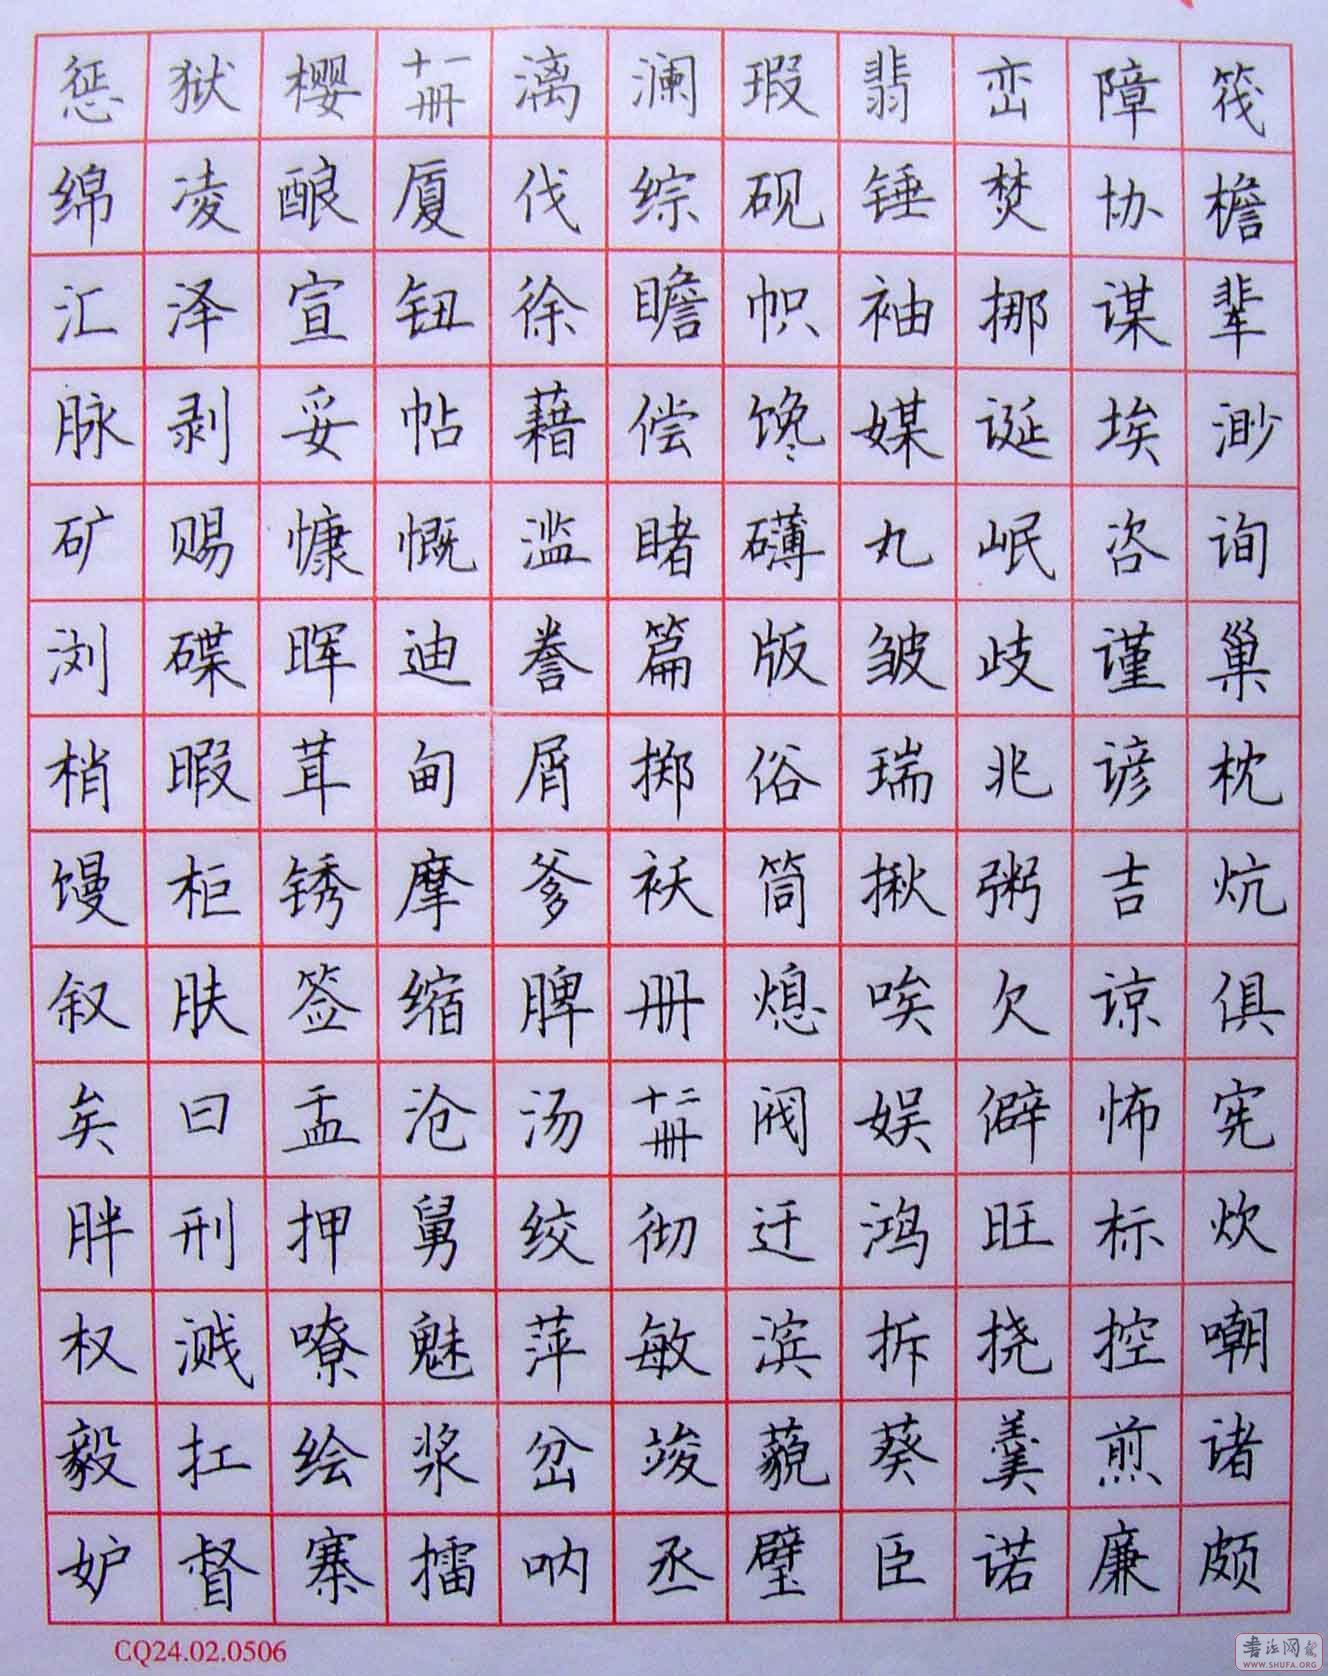 惩狱樱十一册漓澜瑕翡峦障筏
绵凌酿厦伐综砚锤焚协檐
汇泽宣钮徐瞻帜袖挪谋辈
脉剥妥帖藉偿馋媒诞埃渺
矿赐慷慨滥睹礴丸岷咨询
浏碟晖迪誊篇版皱歧谨巢
梢暇茸甸屑掷俗瑞兆谚枕
馒柜锈摩爹袄筒揪粥吉炕
叙肤签缩脾册熄唉欠谅俱
矣曰盂沧汤十二册阀娱僻怖宪
胖刑押舅绞彻迁鸿旺标炊
权溅嘹魅萍敏滨拆挠控嘲
毅扛绘浆岔竣藐葵羹煎诸
妒督寨擂呐丞璧臣诺廉颇
CQ24.02.0506
书法网
WWW.SHUFA.ORG